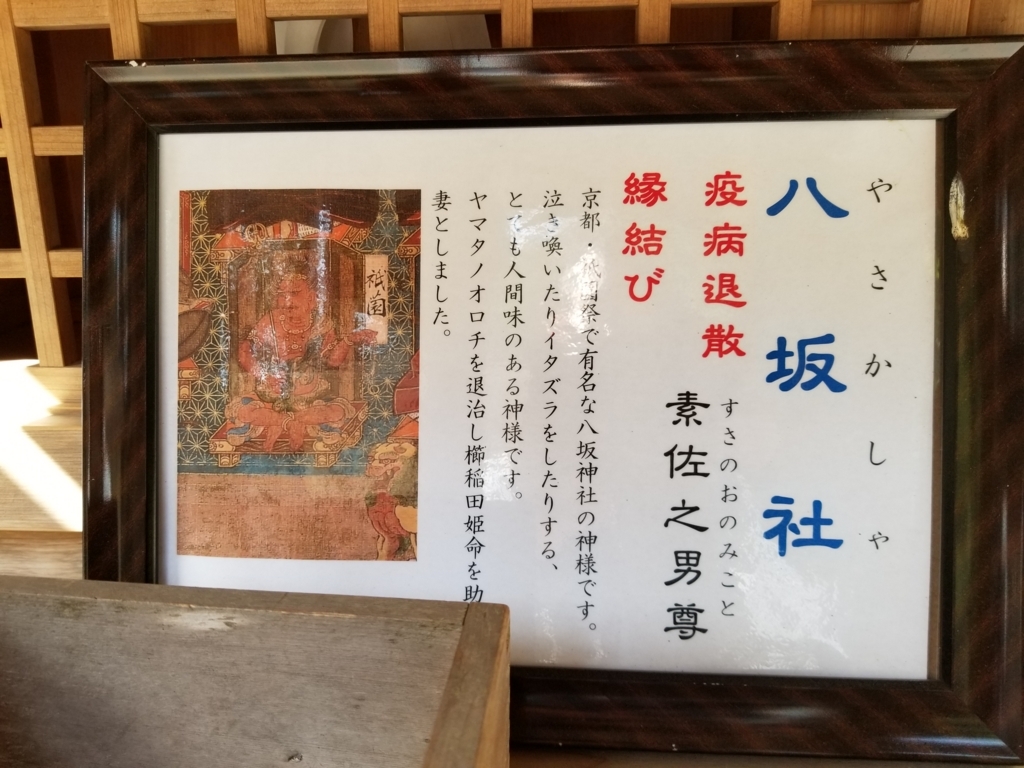 やさかしゃ
八坂社
疫病退散
縁結び
すさのおのみこと
素佐之男尊
京都・祇園祭で有名な八坂神社の神様です。
泣き喚いたりイタズラをしたりする、
とても人間味のある神様です。
ヤマタノオロチを退治し櫛稲田姫命を助
妻としました。
祇園